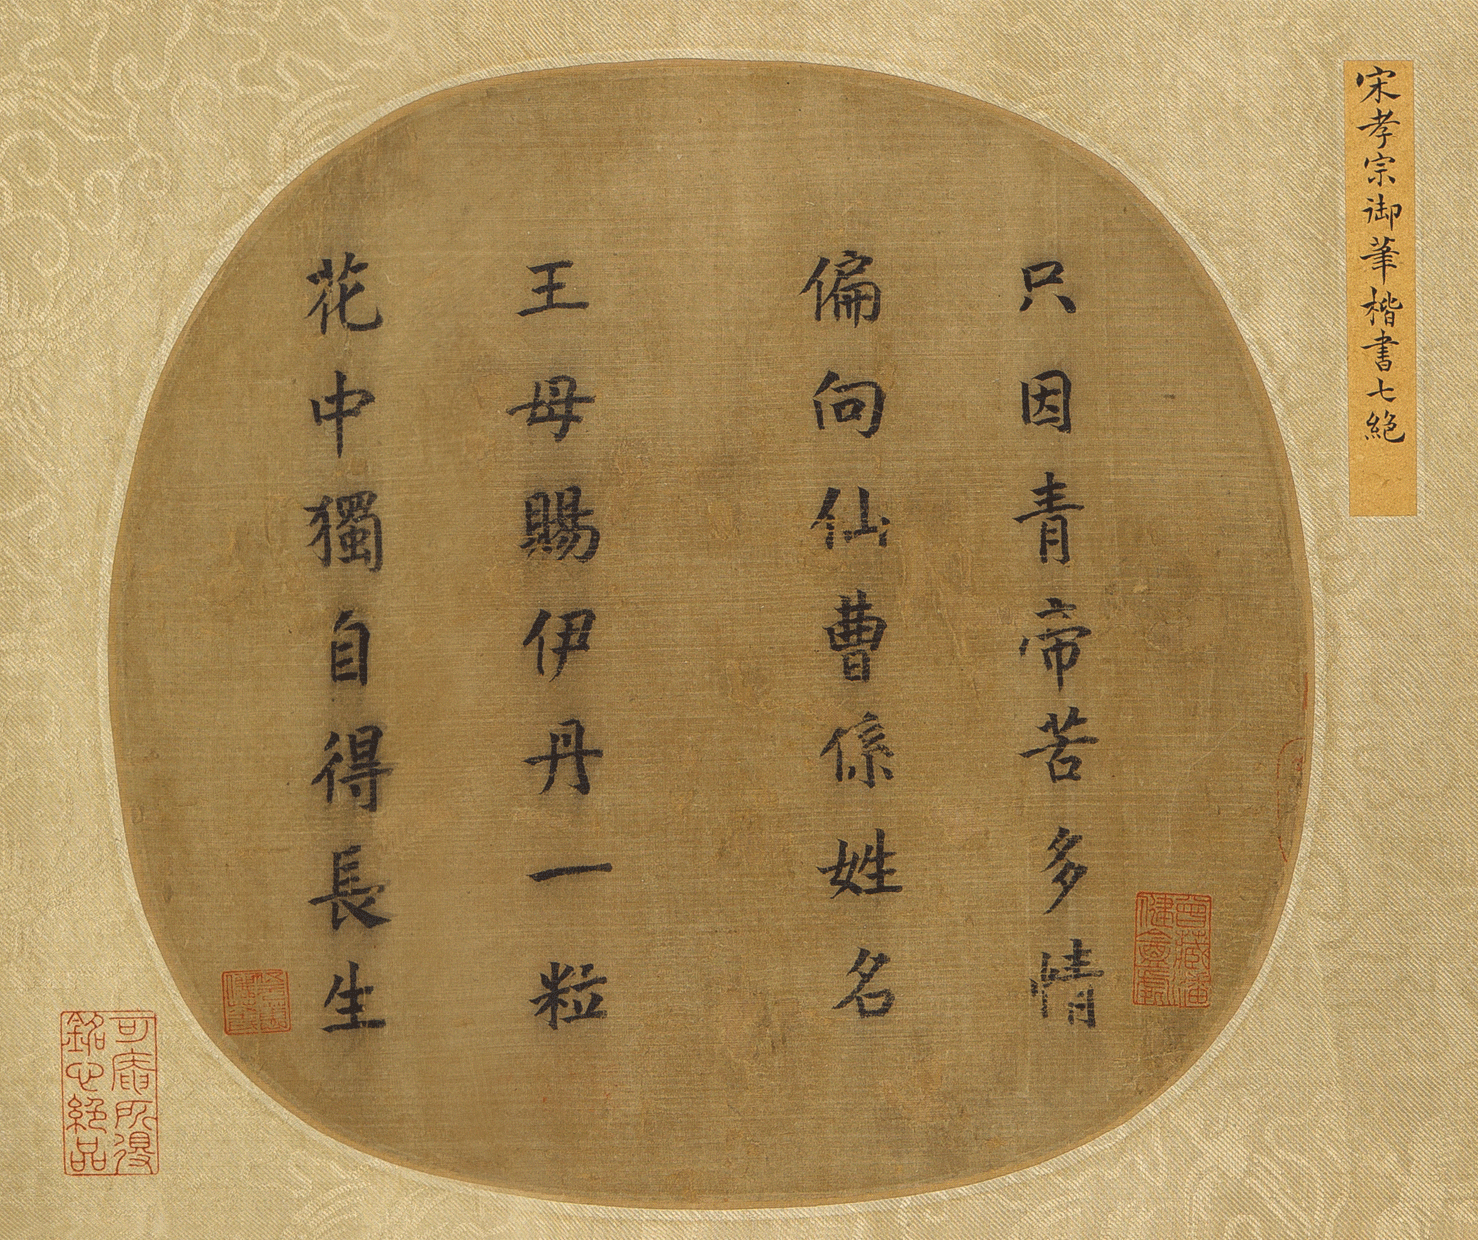 宋孝宗御筆楷書七絕
只因青帝苦多情
偏向仙曹係姓名
王母賜伊丹一粒
花中獨自得長生
可庵所得
銘心絕品